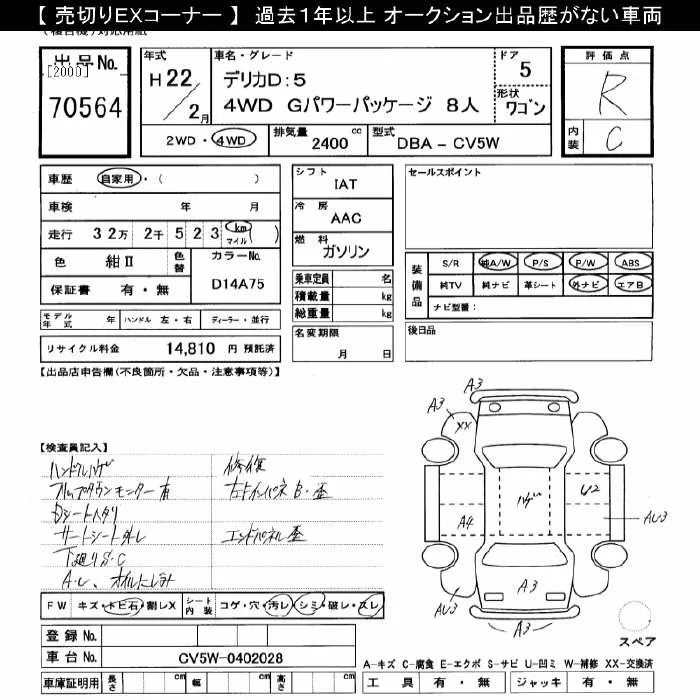 【 売切りEXコーナー 】 過去1年以上 オークション出品歴がない車両
出品No.
[2000]
70564
年式
H22
2月
車名・グレード
デリカD:5
4WD Gパワーパッケージ 8人
ドア
5
形状
ワゴン
評価点
R
内装
C
2WD・4WD
排気量
2400 cc
型式
DBA - CV5W
車歴 自家用・( )
車検 年 月
走行 32万 2千 523 km マイル
色 紺Ⅱ 色替
カラーNo.
D14A75
保証書 有・無
モデル年式 年 ハンドル 左・右 ディーラー・並行
リサイクル料金 14,810 円 預託済
シフト
IAT
冷房
AAC
燃料
ガソリン
乗車定員 名
積載量 kg
総重量 kg
名変期限
月 日
セールスポイント
装備品
S/R 純A/W P/S P/W ABS
純TV 純ナビ 革シート 外ナビ エアB
ナビ型番:
後日品
【出品店申告欄(不良箇所・欠品・注意事項等)】
【検査員記入】
ハンドルハゲ
フリップダウンモニター有
Dシートヘタリ
下廻りS・C
修復
エンドパネル歪
FW キズ・トビ石・割レX シート内装 コゲ・穴・汚レ・シミ・破レ・スレ
登録No.
車台No. CV5W-0402028
車庫証明用 長さ cm 幅 cm 高さ cm
A3
A3
XX
A4
ハゲ
U2
AU3
A3
AU3
A3
スペア
A-キズ C-腐食 E-エクボ S-サビ U-凹ミ W-補修 XX-交換済
工具 有・無 ジャッキ 有・無